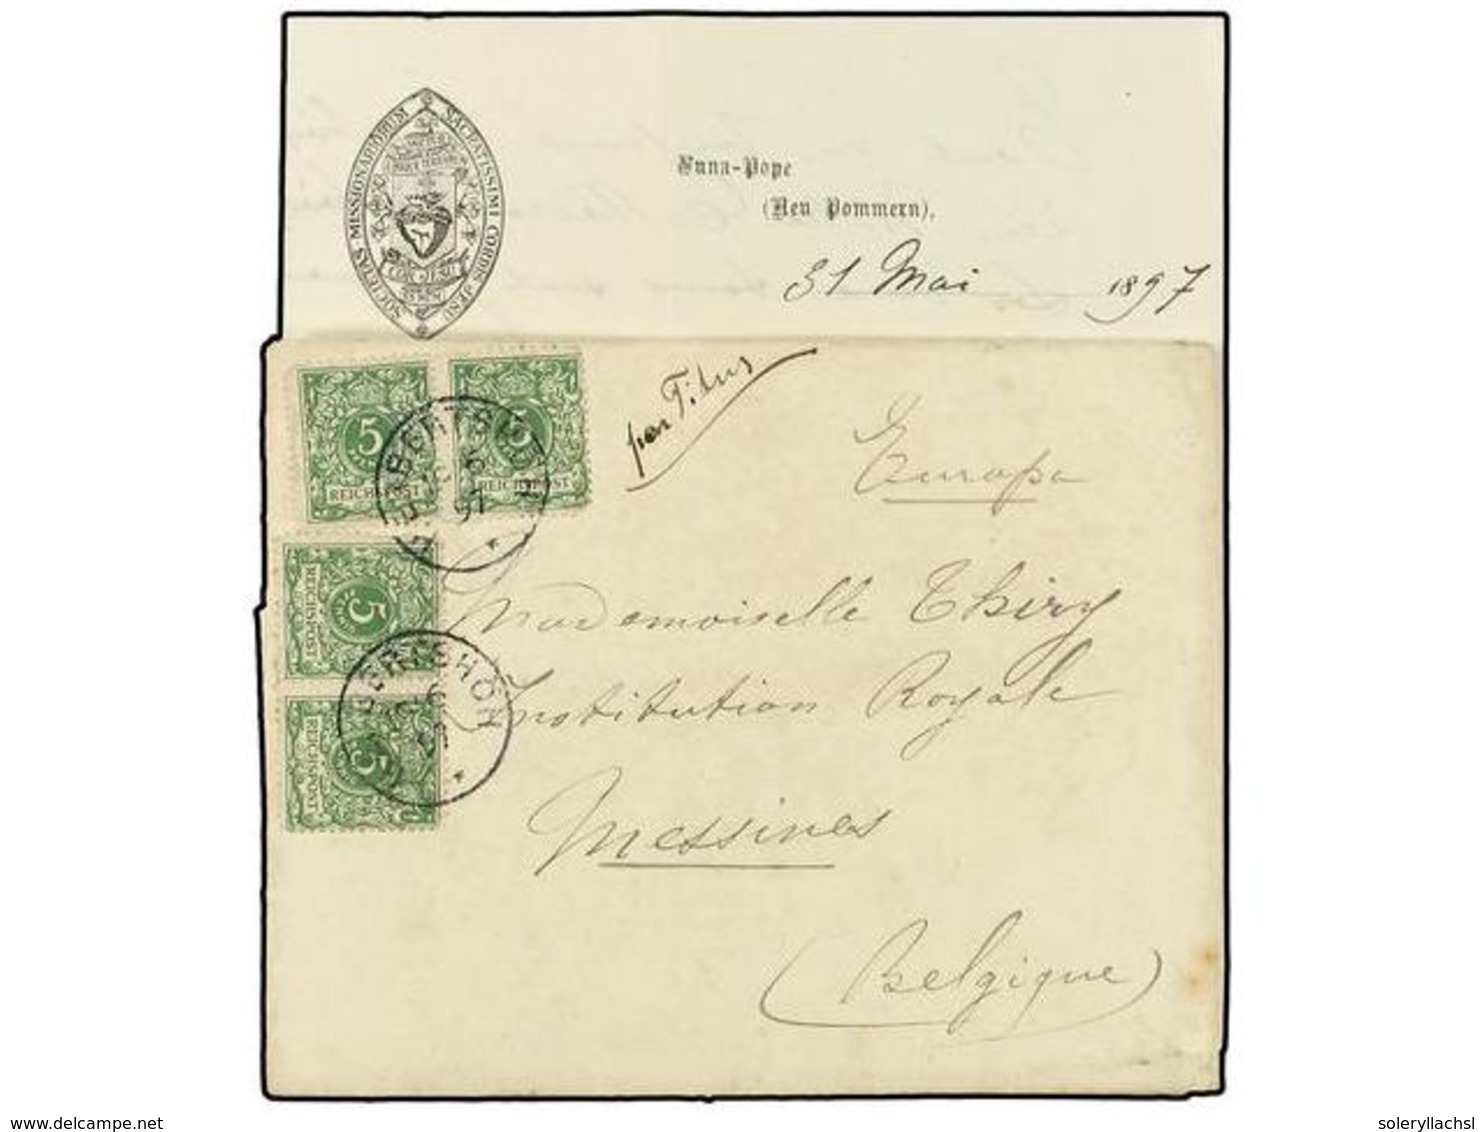 SOCIETAS MISSIONARIORUM SACRATISSIMI CORDIS JESU
COR JESU
Vuna-Pope
(Neu Pommern),
31 Mai 1897
par Titus
5
REICHSPOST
5
REICHSPOST
5
REICHSPOST
5
REICHSPOST
HERBERTSHÖH
97
HERBERTSHÖH
Europa
Mademoiselle Thiry
Institution Royale
Messines
(Belgique)
www.delcampe.net
soleryllachsl